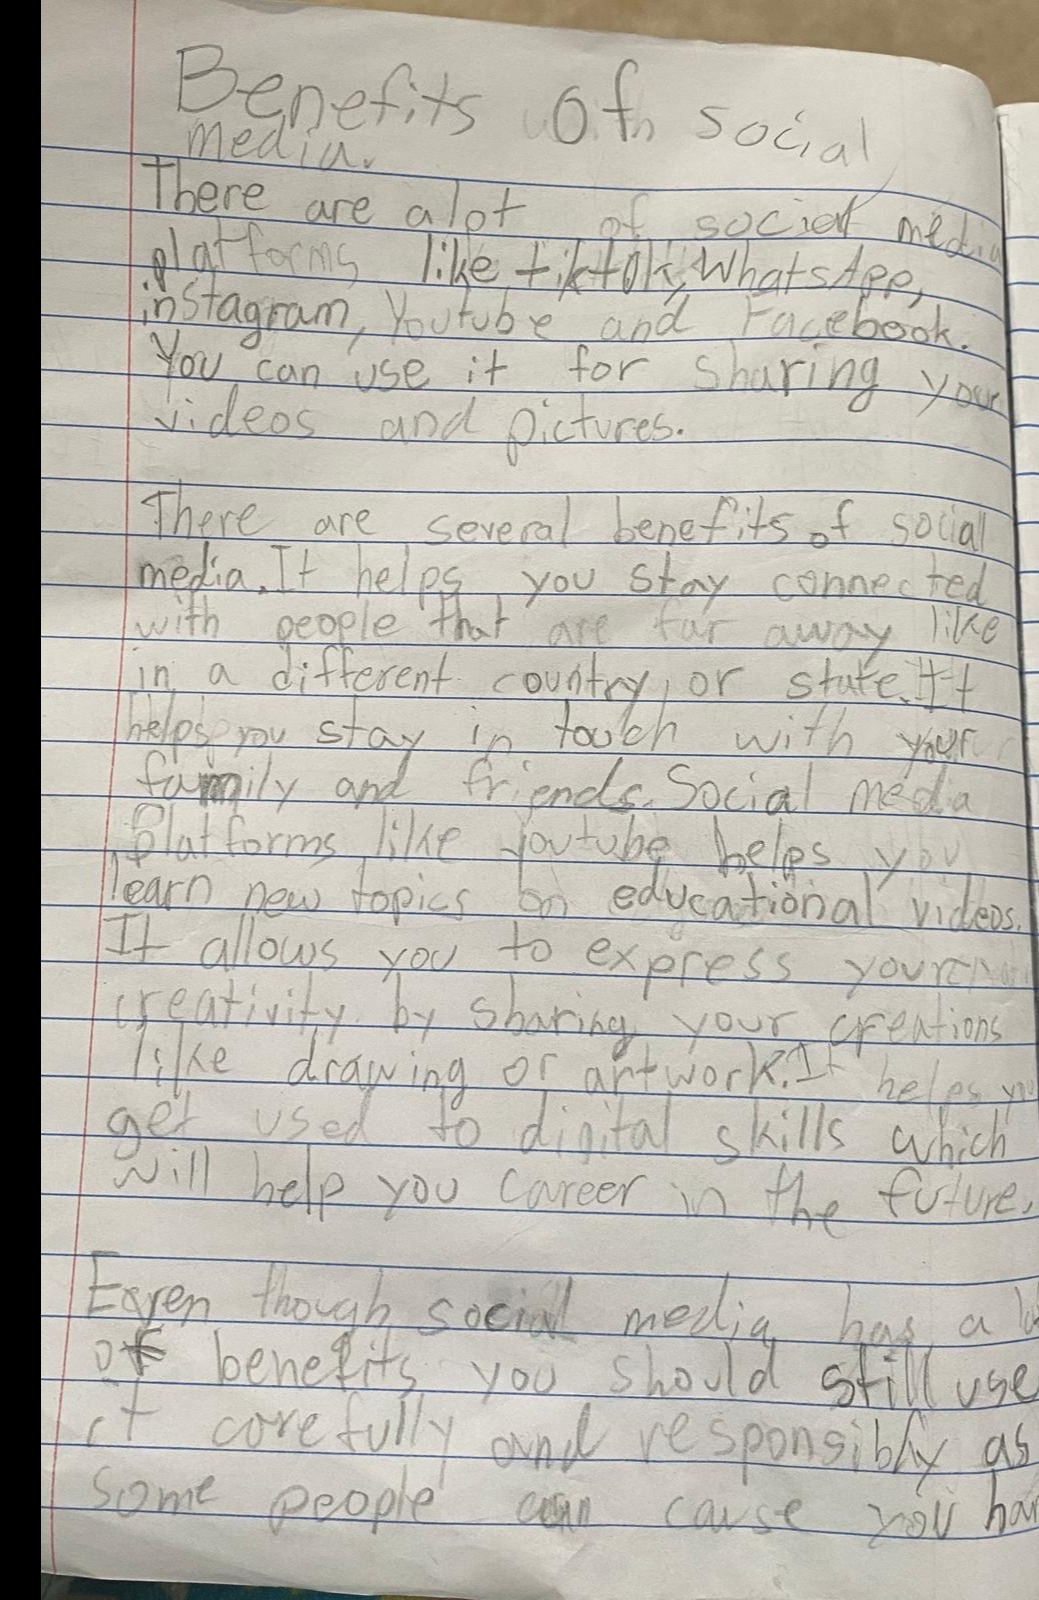 Benefits of social
media.
There are alot of social media
platforms like tiktok, WhatsApp,
instagram, Youtube and Facebook.
You can use it for sharing your
videos and pictures.
There are several benefits of social
media. It helps you stay connected
with people that are far away like
in a different country or state. It
helps you stay in touch with your
family and friends. Social media
Platforms like youtube helps you
learn new topics on educational videos.
It allows you to express your
creativity by sharing your creations
like drawing or artwork. It helps you
get used to digital skills which
will help you career in the future.
Even though social media has a
of benefits you should still use
it carefully and responsibly as
some people can cause you